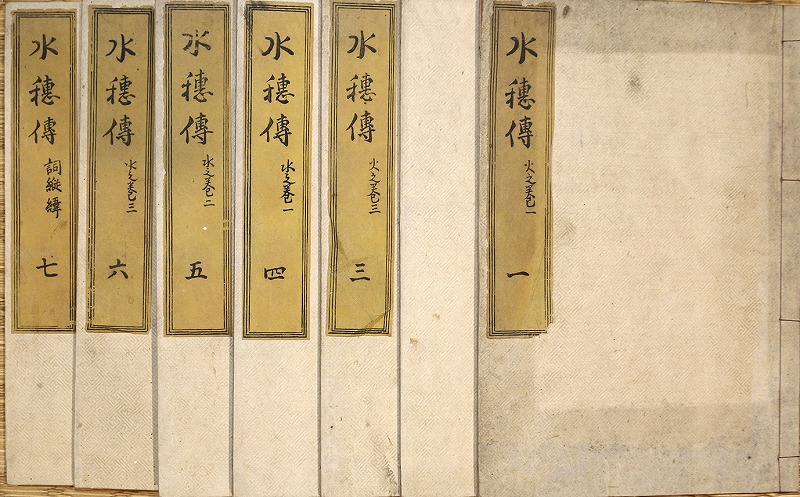 水穂傳 火之巻一 一
水穂傳 火之巻三 三
水穂傳 水之巻一 四
水穂傳 水之巻二 五
水穂傳 水之巻三 六
水穂傳 詞縦緯 七